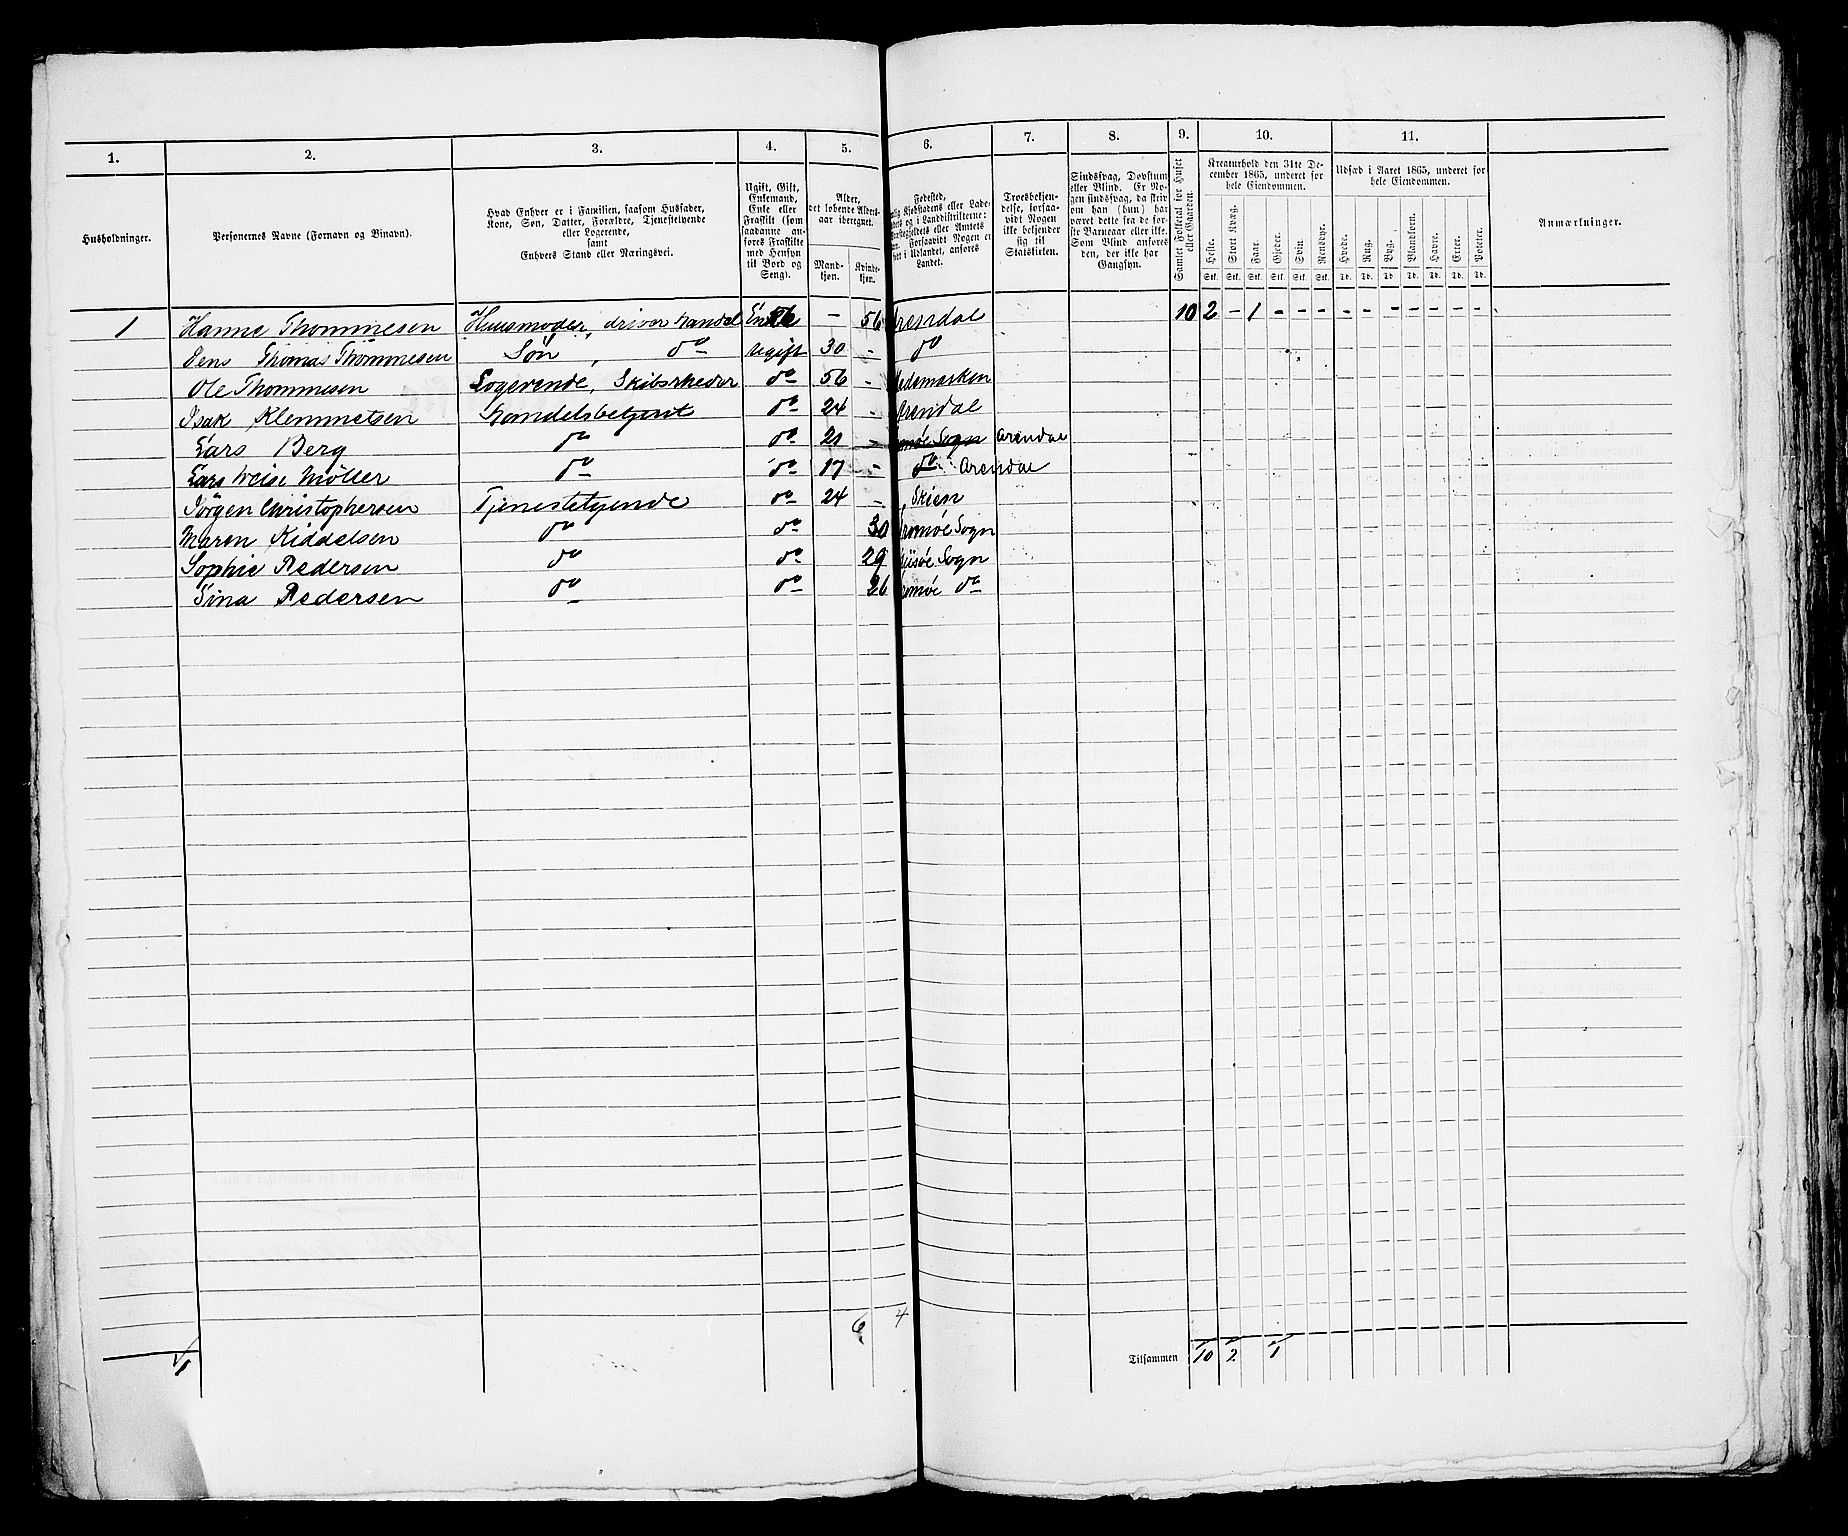 1. 2. 3. 4. 5. 6. 7. 8. 9. 10. 11.
Husholdninger.
Personernes Navne (Fornavn og Binavn).
Hvad Enhver er i Familien, saasom Husfader,
Kone, Søn, Datter, Forældre, Tjenestetyende
eller Logerende,
samt
Enhvers Stand eller Næringsvei.
Ugift, Gift,
Enkemand,
Enke eller
Fraskilt (som
saadanne an-
føres Fraskilte
med Hensyn
til Bord og
Seng).
Alder,
det løbende Alders-
aar iberegnet.
Mand-
kjøn.
Kvinde-
kjøn.
Fødested,
Kjøbstadens eller Lade-
og i Landdistrikterne:
eller Amtets
Forsaavidt Nogen er
født i Udlandet, anføres
Landet.
Troesbekjen-
delse, forsaa-
vidt Nogen
ikke bekjender
sig til
Statskirken.
Sindssvag, Døvstum
eller Blind. Er No-
gen sindssvag, da skriv
om han (hun) har
været dette fra de før-
ste Barneaar eller ikke.
Som Blind anføres
den, der ikke har
Gangsyn.
Samlet Folketal for Huset
eller Gaarden.
Kreaturhold den 31te De-
cember 1865, underet for
hele Eiendommen.
Heste. Stort Kvæg. Faar. Gjeder. Svin. Rensdyr.
Stk. Stk. Stk. Stk. Stk. Stk.
Udsæd i Aaret 1865, underet for
hele Eiendommen.
Hvede. Rug. Byg. Blandkorn. Havre. Erter. Poteter.
Td. Td. Td. Td. Td. Td. Td.
Anmærkninger.
1 Hanne Thommesen Huusmoder, driver handel Enke — 56 Arendal 10 2 - 1 - - - - - - - - - -
Jens Thomas Thommesen Søn, do Ugift 30 - do
Ole Thommesen Logerende, Skibsrheder do 56 - Hedemarken
Isak Klemmetsen Handelsbetjent do 24 - Arendal
Lars Berg do do 21 - Sogn Arendal
Lars Weise Møller do do 17 - do Arendal
Jørgen Christophersen Tjenestetyende do 24 - Skien
Maren Kiddelsen do do 30 Tromøe Sogn
Sophie Pedersen do do 29 Sogn
Sina Pedersen do do 26 Tromøe do
6 4
1 Tilsammen 10 2 1